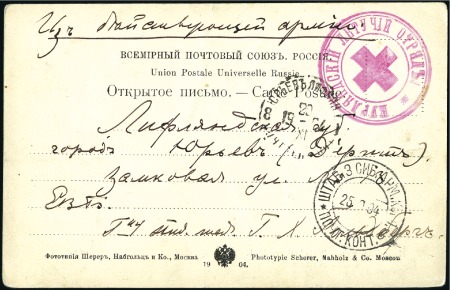 Изъ Действующей армии
ВСЕМІРНЫЙ ПОЧТОВЫЙ СОЮЗЪ. РОССІЯ.
Union Postale Universelle Russie.
Открытое письмо. — Carte Postale
КУРЛЯНДСКІЙ ЛЕТУЧІЙ ОТРЯДЪ
ЮРЬЕВЪ
Лифляндская губ
городъ Юрьевъ (Дерптъ)
Замковая ул.
ШТАБ. 3 СИБ. АРМ.
КОНТ.
Г. Х.
Фототипія Шереръ, Набгольцъ и Ко., Москва
1904.
Phototypie Scherer, Nabholz & Co. Moscou